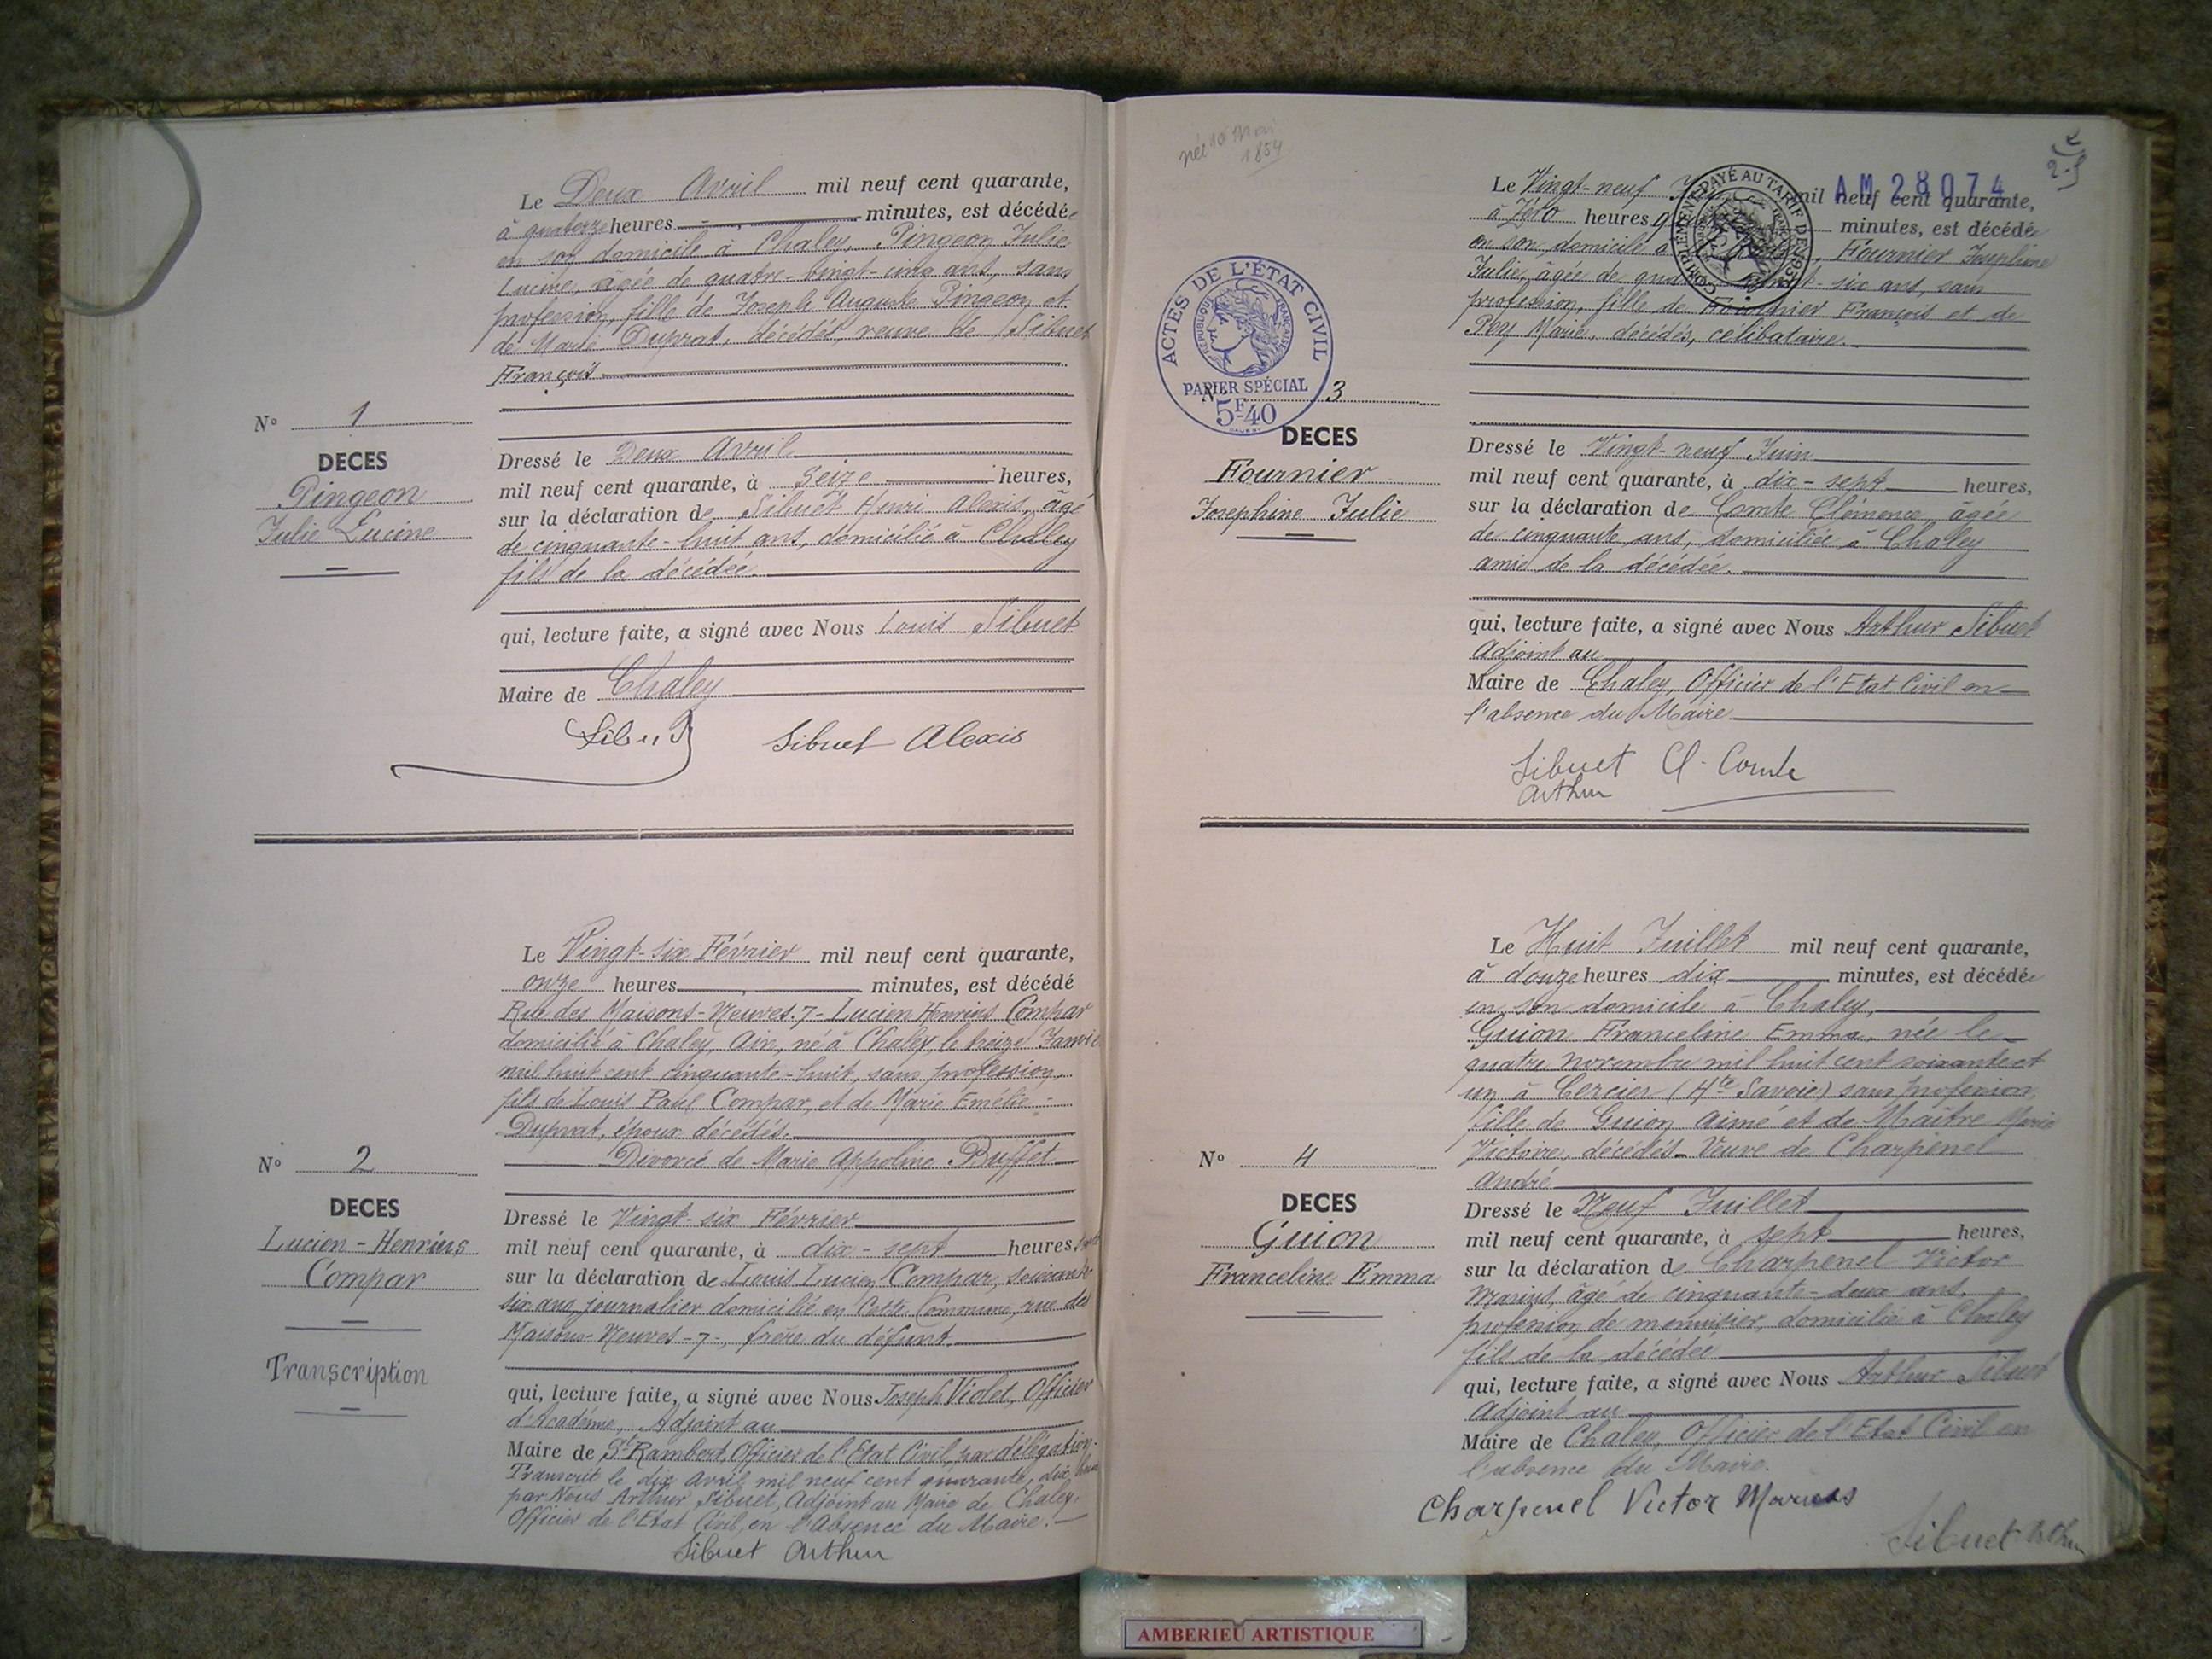 Le Deux Avril mil neuf cent quarante,
à quatorze heures minutes, est décédée
en son domicile à Chaley, Pingeon Julie
Lucine, âgée de quatre-vingt-cinq ans, sans
profession, fille de Joseph Auguste Pingeon et
de Marie Duprat, décédés, veuve de Sibuet
François
N° 1
DECES
Pingeon
Julie Lucine
Dressé le Deux Avril
mil neuf cent quarante, à Seize heures,
sur la déclaration de Sibuet Henri Alexis, âgé
de cinquante-huit ans, domicilié à Chaley
fils de la décédée.
qui, lecture faite, a signé avec Nous Louis Sibuet
Maire de Chaley
Sibuet Sibuet Alexis
Le Vingt-six Février mil neuf cent quarante,
onze heures minutes, est décédé
Rue des Maisons-Neuves-7- Lucien Henrius Compar
domicilié à Chaley, Ain, né à Chaley, le treize Janvier
mil huit cent cinquante-huit, sans profession,
fils de Louis Paul Compar, et de Marie Emélie
Duprat, époux décédés.
Divorcé de Marie Appoline Buffet
N° 2
DECES
Lucien-Henrius
Compar
Transcription
Dressé le Vingt-six Février
mil neuf cent quarante, à dix-sept heures
sur la déclaration de Louis Lucien Compar, soixante
six ans, journalier domicilié en Cette Commune, rue des
Maisons-Neuves-7-, frère du défunt.
qui, lecture faite, a signé avec Nous Joseph Violet, Officier
d'Académie, Adjoint au
Maire de St Rambert, Officier de l'Etat Civil par délégation.
Transcrit le dix Avril mil neuf cent quarante, dix heures
par Nous Arthur Sibuet, Adjoint au Maire de Chaley,
Officier de l'Etat Civil, en l'Absence du Maire.
Sibuet Arthur
née 10 Mai
1854
2
AM 28074
COMPLÉMENT PAYÉ AU TARIF DE
Le Vingt-neuf mil neuf cent quarante,
à Zéro heures minutes, est décédée
en son domicile à Fournier Joséphine
Julie, âgée de six ans, sans
profession, fille de Fournier François et de
Pey Marie, décédés, célibataire.
ACTES DE L'ÉTAT CIVIL
RÉPUBLIQUE FRANÇAISE
PAPIER SPÉCIAL
5F40
N° 3
DECES
Fournier
Josephine Julie
Dressé le Vingt-neuf Juin
mil neuf cent quarante, à dix-sept heures,
sur la déclaration de Comte Clémence, âgée
de cinquante ans, domiciliée à Chaley
amie de la décédée.
qui, lecture faite, a signé avec Nous Arthur Sibuet
Adjoint au
Maire de Chaley, Officier de l'Etat Civil en
l'absence du Maire
Sibuet Cl. Comte
Arthur
Le Huit Juillet mil neuf cent quarante,
à douze heures dix minutes, est décédée
en son domicile à Chaley,
Guion Franceline Emma, née le
quatre novembre mil huit cent soixante et
un à Cercier (Hte Savoie) sans profession,
fille de Guion Aimé et de Maître Marie
Victoire, décédés. Veuve de Charpenel
André
N° 4
DECES
Guion
Franceline Emma
Dressé le Neuf Juillet
mil neuf cent quarante, à sept heures,
sur la déclaration de Charpenel Victor
Marius, âgé de cinquante-deux ans,
profession de menuisier, domicilié à Chaley
fils de la décédée
qui, lecture faite, a signé avec Nous Arthur Sibuet
Adjoint au
Maire de Chaley, Officier de l'Etat Civil en
l'absence du Maire.
Charpenel Victor Marius
Sibuet Arthur
AMBERIEU ARTISTIQUE